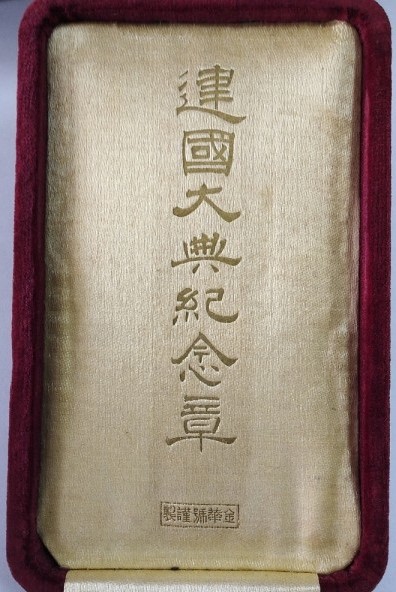 建國大典紀念章
金華號謹製